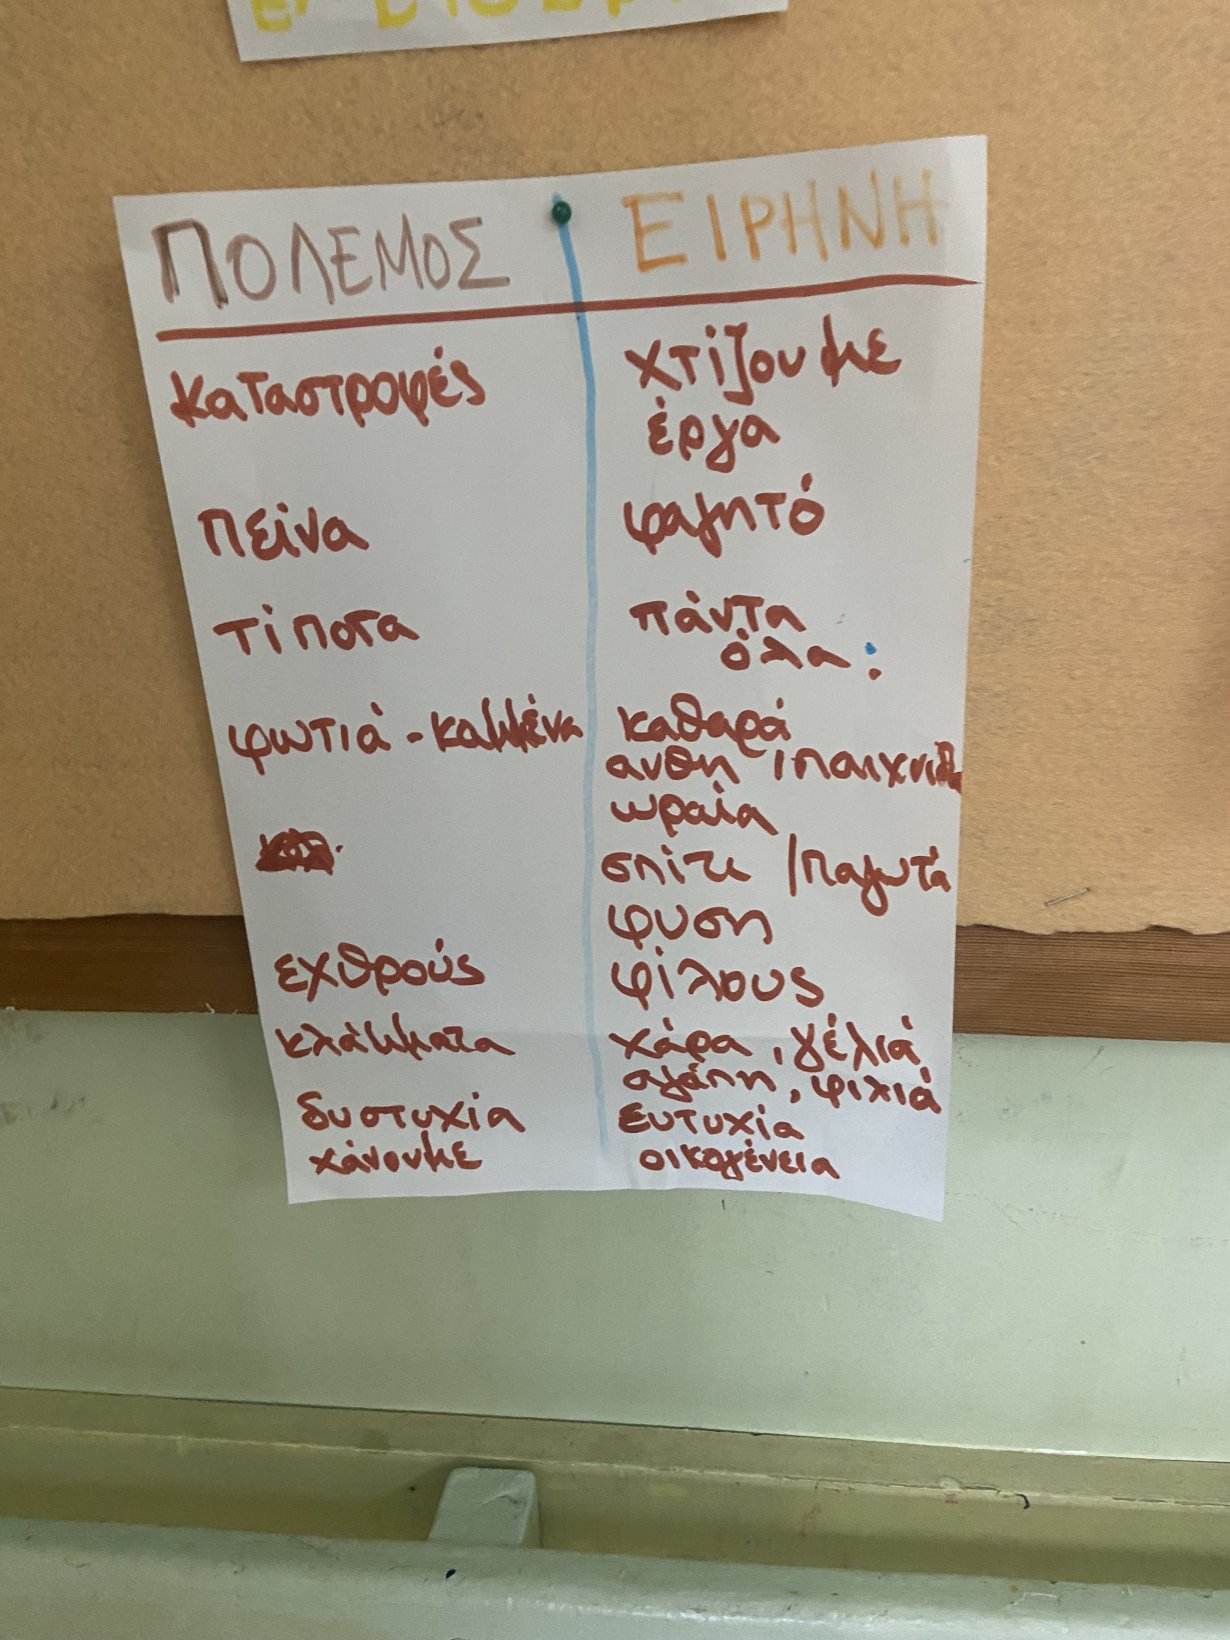 ΠΟΛΕΜΟΣ
ΕΙΡΗΝΗ
καταστροφές
χτίζουμε
έργα
πείνα
φαγητό
τίποτα
πάντα
όλα :
φωτιά - καμμένα
καθαρά
ανθη , παιχνίδια
ωραία
σπίτι / παγωτά
φυση
εχθρούς
φίλους
κλάμματα
χάρα , γέλιά
αγάπη , φιλιά
δυστυχία
ευτυχία
χάνουμε
οικογένεια